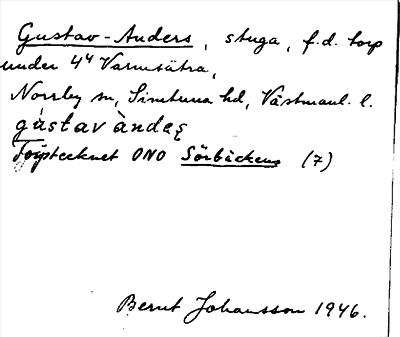 Gustav-Anders, stuga, f.d. torp
under 4ᵈ Varmsätra,
Norrby sn, Simtuna hd, Västmanl. l.
gùstav àndeʂ
Torptecknet ONO Sörbäckens (7)
Bernt Johansson 1946.